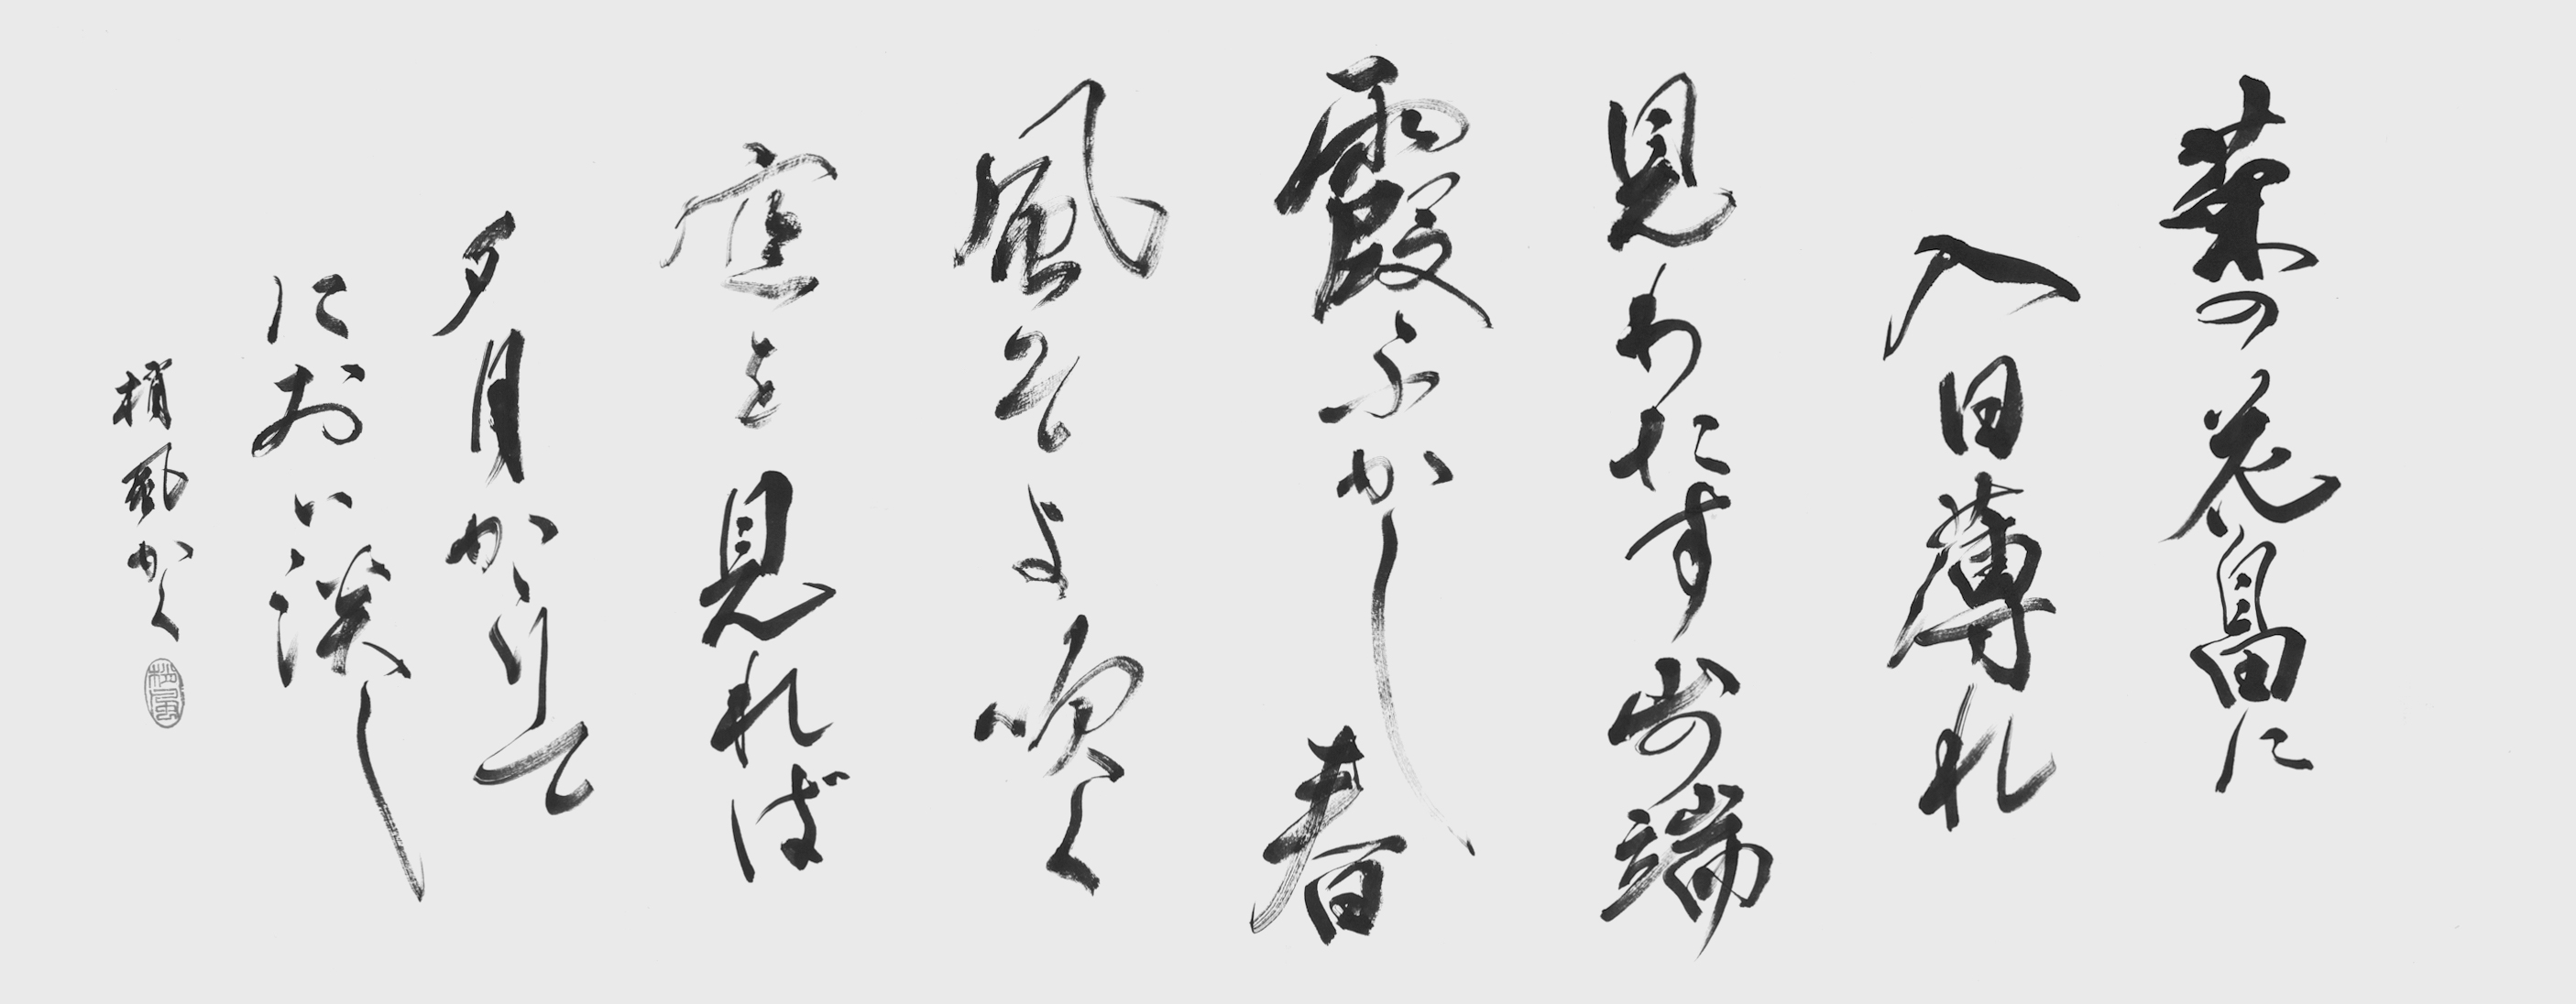 菜の花畠に
入日薄れ
見わたす山の端
霞ふかし 春
風そよ吹く
空を見れば
夕月かゝりて
におい淡し
梢風かく